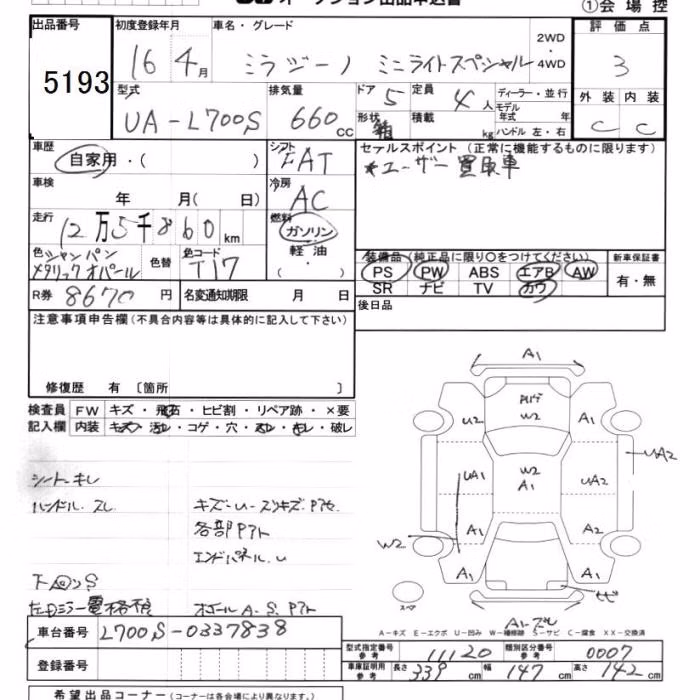 オークション出品申込書
①会場控
出品番号
5193
初度登録年月
16年4月
車名・グレード
ミラジーノ ミニライトスペシャル
2WD・4WD
評価点
3
型式
UA-L700S
排気量
660cc
ドア 5
形状 箱
定員 4人
積載 kg
ディーラー・並行
モデル年式 年
ハンドル 左・右
外装 C
内装 C
車歴
自家用・( )
シフト FAT
セールスポイント (正常に機能するものに限ります)
*ユーザー買取車
車検
年 月( 日)
冷房 AC
走行
12万5千860km
燃料
ガソリン
軽油
色 シャンパンメタリックオパール
色替
色コード T17
装備品 (純正品に限り○をつけてください)
PS PW ABS エアB AW
SR ナビ TV カワ
新車保証書
有・無
R券 8670円
名変通知期限 月 日
後日品
注意事項申告欄(不具合内容等は具体的に記入して下さい)
修復歴 有 〔箇所 〕
検査員記入欄
FW キズ・飛石・ヒビ割・リペア跡・×要
内装 キズ・汚レ・コゲ・穴・スレ・キレ・破レ
シートキレ
ハンドル スレ
キズ・U・スリキズ・Pアセ
各部Pアト
エンドパネル U
電格不良
A.S.Pアト
A1
W2
U2
A1
UA2
UA1
W2
A1
UA2
W2
A1
A2
A1
A1
ヒビ
スペア
A1・ズレ
A-キズ E-エクボ U-凹み W-補修跡 S-サビ C-腐食 XX-交換済
車台番号 L700S-0337838
登録番号
型式指定番号 参考 11120
類別区分番号 参考 0007
車庫証明用 参考 長さ 339cm 幅 147cm 高さ 142cm
希望出品コーナー (コーナーは各会場により異なります。)